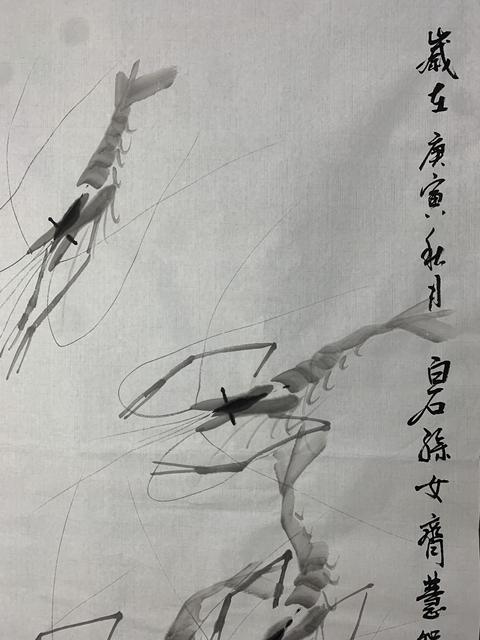 歲在庚寅秋月白石孫女齊慧